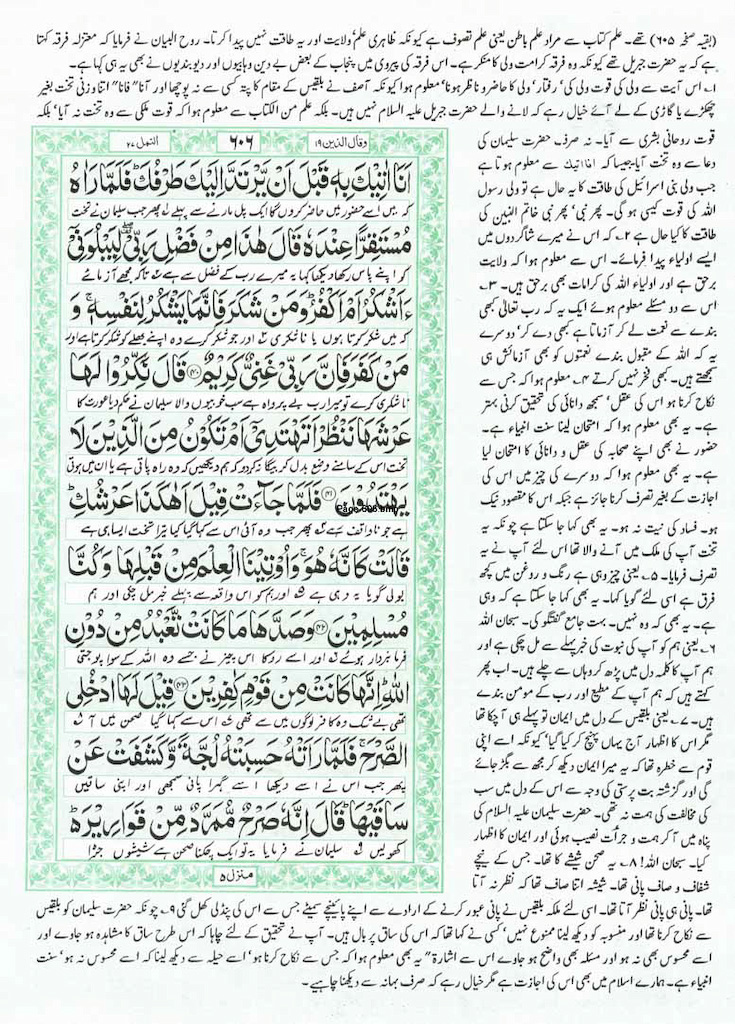 (بقیہ صفحہ ۶۰۵) تھے۔ علم کتاب سے مراد علم باطن یعنی علم تصوف ہے کیونکہ ظاہری علم' ولایت اور یہ طاقت نہیں پیدا کرتا۔ روح البیان نے فرمایا کہ معتزلہ فرقہ کہتا
ہے کہ یہ حضرت جبریل تھے کیونکہ وہ فرقہ کرامت ولی کا منکر ہے۔ اس فرقہ کی پیروی میں پنجاب کے بعض بے دین وہابیوں اور دیوبندیوں نے بھی یہ ہی کہا ہے۔
۱۔ اس آیت سے ولی کی قوت ولی کی' رفتار' ولی کا حاضر و ناظر ہونا' معلوم ہوا کیونکہ آصف نے بلقیس کے مقام کا پتہ کسی سے نہ پوچھا اور آنا" فانا" اتنا وزنی تخت بغیر
چھکڑے یا گاڑی کے لے آئے خیال رہے کہ لانے والے حضرت جبریل علیہ السلام نہیں ہیں۔ بلکہ علم من الکتاب سے معلوم ہوا کہ قوت ملکی سے وہ تخت نہ آیا' بلکہ
قوت روحانی بشری سے آیا۔ نہ صرف حضرت سلیمان کی
دعا سے وہ تخت آیا جیسا کہ انا اتیک سے معلوم ہوتا ہے
جب ولی بنی اسرائیل کی طاقت کا یہ حال ہے تو ولی رسول
اللہ کی قوت کیسی ہو گی۔ پھر نبی' پھر نبی خاتم النبین کی
طاقت کا کیا حال ہے ۲۔ کہ اس نے میرے شاگردوں میں
ایسے اولیاء پیدا فرمائے۔ اس سے معلوم ہوا کہ ولایت
برحق ہے اور اولیاء اللہ کی کرامات بھی برحق ہیں۔ ۳۔
اس سے دو مسئلے معلوم ہوئے ایک یہ کہ رب تعالیٰ کبھی
بندے سے نعمت لے کر آزماتا ہے کبھی دے کر' دوسرے
یہ کہ اللہ کے مقبول بندے نعمتوں کو بھی آزمائش ہی
سمجھتے ہیں۔ کبھی فخر نہیں کرتے ۴۔ معلوم ہوا کہ جس سے
نکاح کرنا ہو اس کی عقل' سمجھ دانائی کی تحقیق کرنی بہتر
ہے۔ یہ بھی معلوم ہوا کہ امتحان لینا سنت انبیاء ہے۔
حضور نے بھی اپنے صحابہ کی عقل و دانائی کا امتحان لیا
ہے۔ یہ بھی معلوم ہوا کہ دوسرے کی چیز میں اس کی
اجازت کے بغیر تصرف کرنا جائز ہے جبکہ اس کا مقصود نیک
ہو۔ فساد کی نیت نہ ہو۔ یہ بھی کہا جا سکتا ہے چونکہ یہ
تخت آپ کی ملک میں آنے والا تھا اس لئے آپ نے یہ
تصرف فرمایا۔ ۵۔ یعنی چیز وہی ہے رنگ و روغن میں کچھ
فرق ہے اسی لئے گویا کہا۔ یہ بھی کہا جا سکتا ہے کہ وہی
ہے۔ یہ بھی کہ وہ نہیں۔ بہت جامع گفتگو کی۔ سبحان اللہ
۶۔ یعنی ہم کو آپ کی نبوت کی خبر پہلے سے مل چکی ہے اور
ہم آپ کا کلمہ دل میں پڑھ کر وہاں سے چلے ہیں۔ اب پھر
کہتے ہیں کہ ہم آپ کے مطیع اور رب کے مومن بندے
ہیں۔ ۷۔ یعنی بلقیس کے دل میں ایمان تو پہلے ہی آ چکا تھا
مگر اس کا اظہار آج یہاں پہنچ کر کیا گیا' کیونکہ اسے اپنی
قوم سے خطرہ تھا کہ یہ میرا ایمان دیکھ کر مجھ سے بگڑ جائے
گی اور گزشتہ بت پرستی کی وجہ سے اس کے دل میں سب
کی مخالفت کی ہمت نہ تھی۔ حضرت سلیمان علیہ السلام کی
پناہ میں آ کر ہمت و جرأت نصیب ہوئی اور ایمان کا اظہار
کیا۔ سبحان اللہ! ۸۔ یہ صحن شیشے کا تھا۔ جس کے نیچے
شفاف و صاف پانی تھا۔ شیشہ اتنا صاف تھا کہ نظر نہ آتا
وقال الذین ۱۹
۶۰۶
النمل ۲۷
اَنَا اٰتِیْكَ بِهٖ قَبْلَ اَنْ یَّرْتَدَّ اِلَیْكَ طَرْفُكَ فَلَمَّا رَاٰهُ
کہ میں اسے حضور میں حاضر کر دوں گا ایک پل مارنے سے پہلے پھر جب سلیمان نے تخت
مُسْتَقِرًّا عِنْدَهٗ قَالَ هٰذَا مِنْ فَضْلِ رَبِّیْ لِیَبْلُوَنِیْۤ
کو اپنے پاس رکھا دیکھا کہا یہ میرے رب کے فضل سے ہے تاکہ مجھے آزمائے
ءَاَشْكُرُ اَمْ اَكْفُرُ وَمَنْ شَكَرَ فَاِنَّمَا یَشْكُرُ لِنَفْسِهٖ وَ
کہ میں شکر کرتا ہوں یا ناشکری اور جو شکر کرے وہ اپنے بھلے کو شکر کرتا ہے اور
مَنْ كَفَرَ فَاِنَّ رَبِّیْ غَنِیٌّ كَرِیْمٌ ﴿۴۰﴾ قَالَ نَكِّرُوْا لَهَا
ناشکری کرے تو میرا رب بے پرواہ ہے سب خوبیوں والا سلیمان نے حکم دیا عورت کا
عَرْشَهَا نَنْظُرْ اَتَهْتَدِیْۤ اَمْ تَكُوْنُ مِنَ الَّذِیْنَ لَا
تخت اس کے سامنے وضع بدل کر بیگانہ کر دو کہ ہم دیکھیں کہ وہ راہ پاتی ہے یا ان میں ہوتی
یَهْتَدُوْنَ ﴿۴۱﴾ فَلَمَّا جَآءَتْ قِیْلَ اَهٰكَذَا عَرْشُكِ
ہے جو ناواقف رہے پھر جب وہ آئی اس سے کہا گیا کیا تیرا تخت ایسا ہی ہے
قَالَتْ كَاَنَّهٗ هُوَ وَاُوْتِیْنَا الْعِلْمَ مِنْ قَبْلِهَا وَكُنَّا
بولی گویا یہ وہی ہے اور ہم کو اس واقعہ سے پہلے خبر مل چکی اور ہم
مُسْلِمِیْنَ ﴿۴۲﴾ وَصَدَّهَا مَا كَانَتْ تَّعْبُدُ مِنْ دُوْنِ
فرمانبردار ہوئے اور اسے روکا اس چیز نے جسے وہ اللہ کے سوا پوجتی
اللّٰهِ اِنَّهَا كَانَتْ مِنْ قَوْمٍ كٰفِرِیْنَ ﴿۴۳﴾ قِیْلَ لَهَا ادْخُلِی
تھی بے شک وہ کافر لوگوں میں سے تھی اس سے کہا گیا صحن میں آ
الصَّرْحَ فَلَمَّا رَاَتْهُ حَسِبَتْهُ لُجَّةً وَّكَشَفَتْ عَنْ
پھر جب اس نے اسے دیکھا اسے گہرا پانی سمجھی اور اپنی ساقیں
سَاقَیْهَا قَالَ اِنَّهٗ صَرْحٌ مُّمَرَّدٌ مِّنْ قَوَارِیْرَ
کھولیں سلیمان نے فرمایا یہ تو ایک چکنا صحن ہے شیشوں جڑا
منزل ۵
تھا۔ پانی ہی پانی نظر آتا تھا۔ اسی لئے ملکہ بلقیس نے پانی عبور کرنے کے ارادے سے اپنے پائینچے سمیٹے جس سے اس کی پنڈلی کھل گئی ۹۔ چونکہ حضرت سلیمان کو بلقیس
سے نکاح کرنا تھا اور منسوبہ کو دیکھ لینا ممنوع نہیں' کسی نے کہا تھا کہ اس کی ساق پر بال ہیں۔ آپ نے تحقیق کے لئے چاہا کہ اس طرح ساق کا مشاہدہ ہو جاوے اور
اسے محسوس بھی نہ ہو اور مسئلہ بھی واضح ہو جاوے اس سے اشارۃ" یہ بھی معلوم ہوا کہ جس سے نکاح کرنا ہو' اسے حیلہ سے دیکھ لینا کہ اسے محسوس نہ ہو' سنت
انبیاء ہے۔ ہمارے اسلام میں بھی اس کی اجازت ہے مگر خیال رہے کہ صرف بہانہ سے دیکھنا چاہیے۔